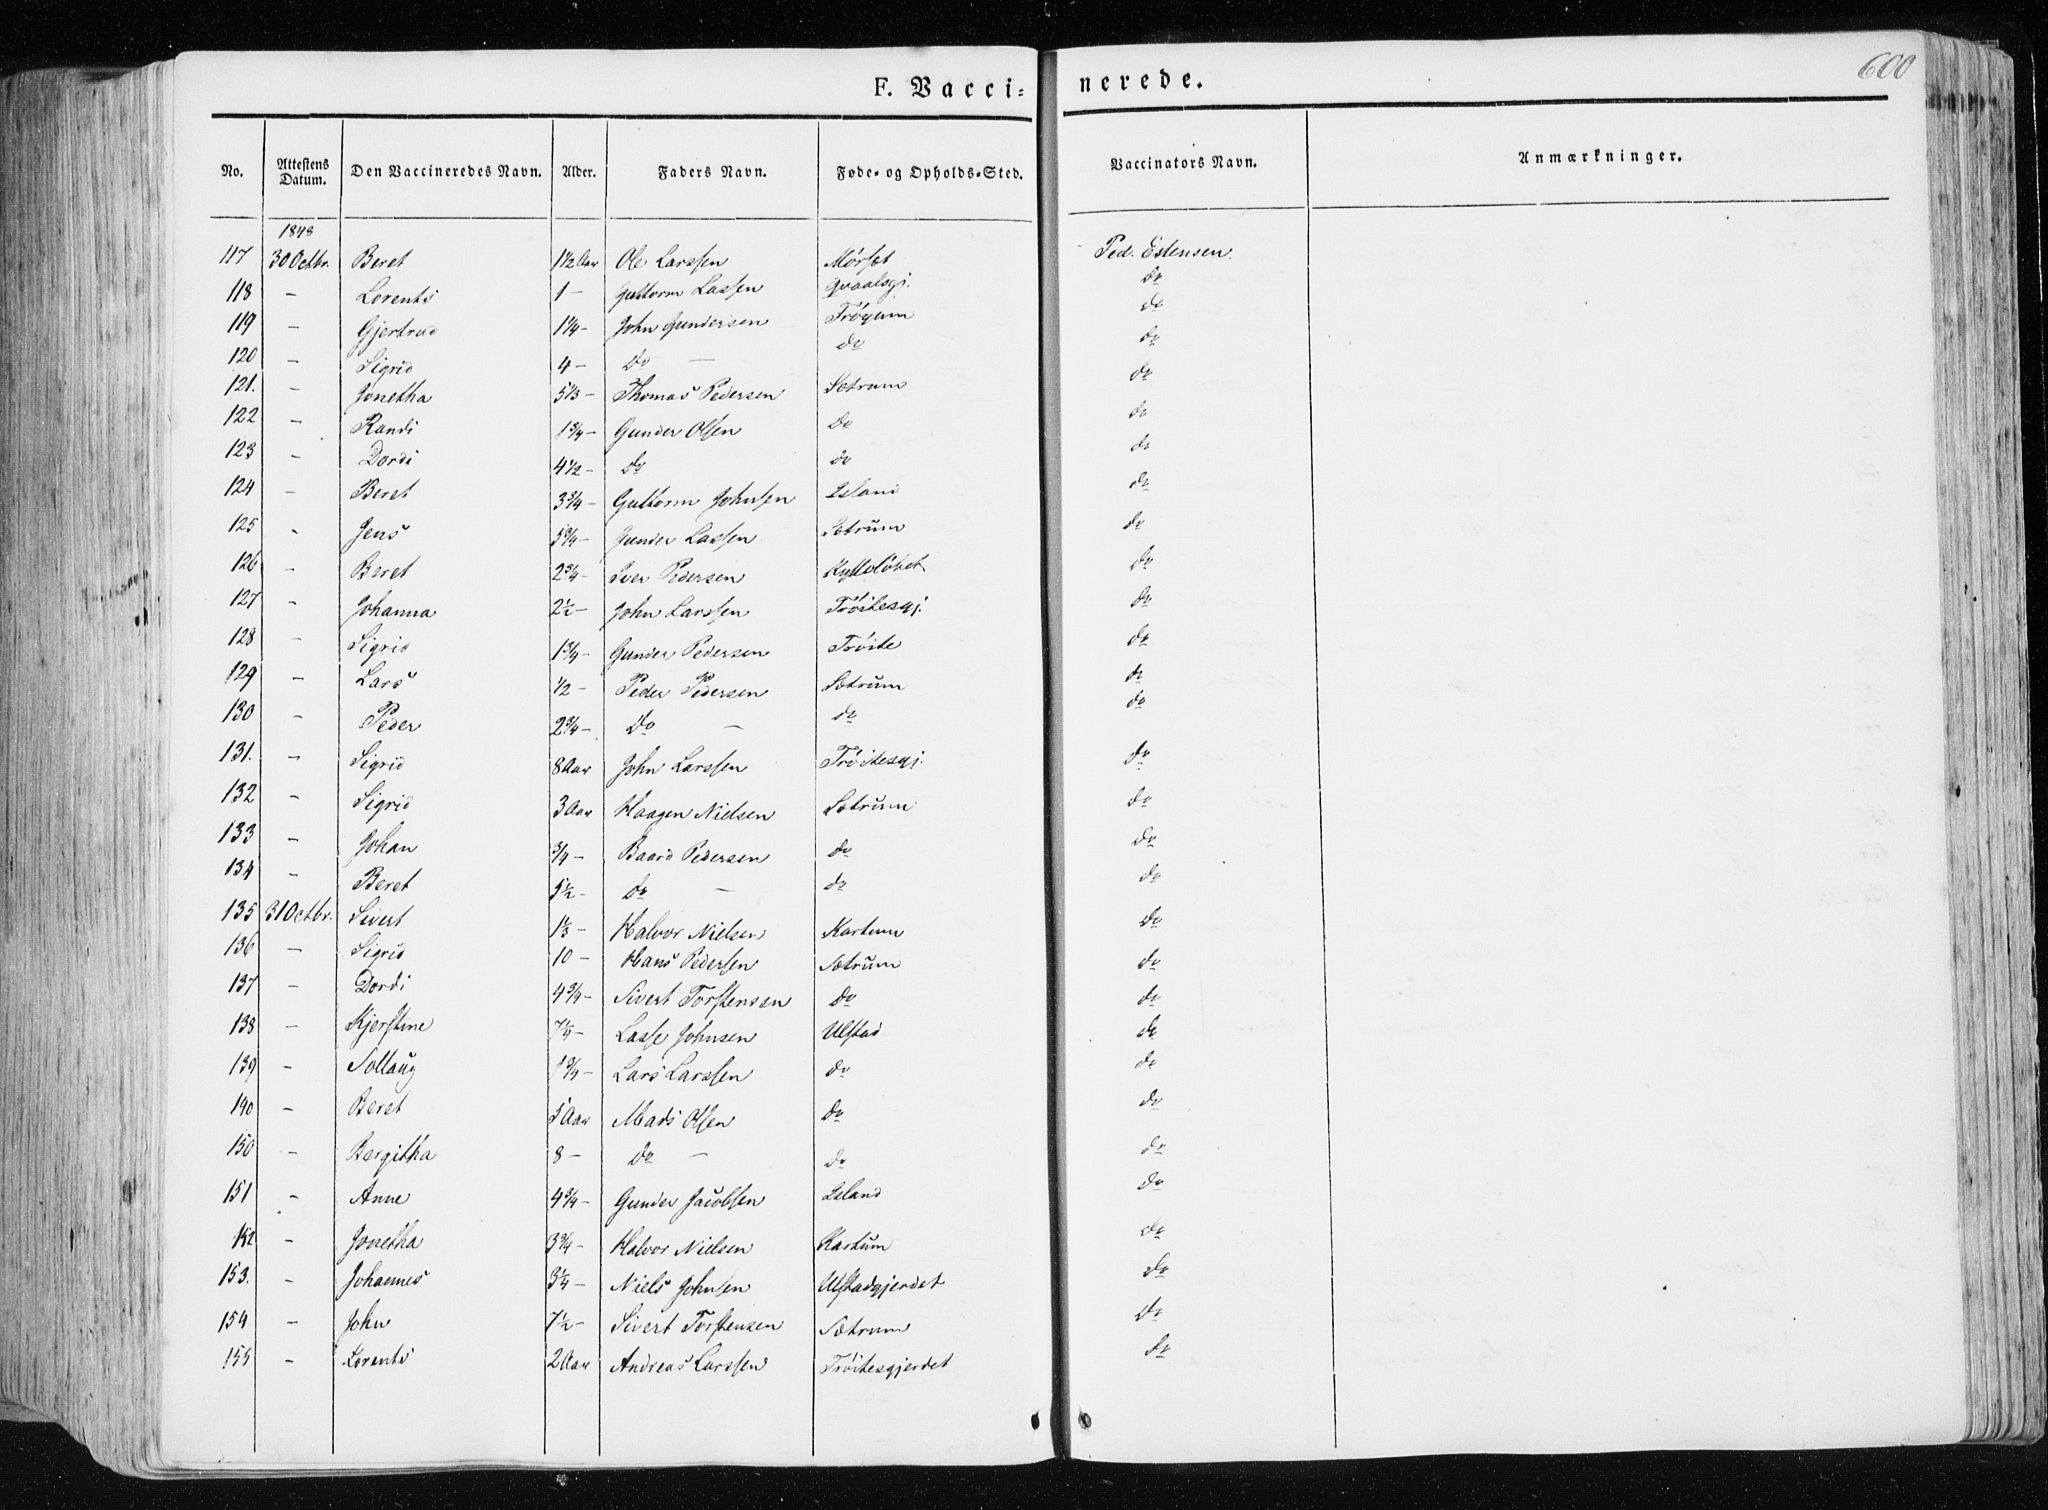 600
F. Vaccinerede.
No. Attestens Datum. Den Vaccineredes Navn. Alder. Faders Navn. Føde- og Opholds-Sted. Vaccinators Navn. Anmærkninger.
1843
117 30 Octbr. Beret 1 1/2 Aar Ole Larssen Mørset Ped. Estensen.
118 – Lorents 1 – Guttorm Lassen Qvaalsgj. do
119 – Gjertrud 1 1/4 – John Gundersen Trøgum do
120 – Sigrid 4 – Do – do do
121. – Jonetha 5 1/3 – Thomas Pedersen Sætrum do
122 – Randi 1 3/4 – Gunder Olsen Do do
123 – Dordi 4 1/2 – do do do
124 – Beret 3 3/4 – Guttorm Johnsen Island do
125 – Jens 5 3/4 – Gunder Lassen Sætrum do
126 – Beret 2 3/4 – Iver Pedersen do
127 – Johanna 2 1/2 – John Larssen Trøitesgj. do
128 – Sigrid 1 3/4 – Gunder Pedersen Trøite do
129 – Lars 1/2 – Peder Pedersen Sætrum do
130 – Peder 2 3/4 – Do – do do
131. – Sigrid 8 Aar John Larssen Trøitesgj. do
132 – Sigrid 3 Aar Haagen Nielsen Sætrum do
133 – Johan 3/4 – Baard Pedersen do do
134 – Beret 5 1/2 – do – do do
135 31 Octbr. Sivert 1 1/3 – Halvor Nielsen Kartum do
136 – Sigrid 10 – Hans Pedersen Sætrum do
137 – Dordi 4 3/4 – Sivert Torstensen Do do
138 – Kjerstine 7 1/4 – Lasse Johnsen Ulstad do
139 – Sollaug 1 3/4 – Lars Larssen do do
140 – Beret 5 Aar Mads Olsen do do
150 – Bergitha 8 – Do – do do
151 – Anne 4 3/4 – Gunder Jacobsen Island do
152 – Jonetha 3 3/4 – Halvor Nielsen Kartum do
153. – Johannes 3 1/4 – Niels Johnsen Ulstadgjerdet do
154 – John 7 1/2 – Sivert Torstensen Sætrum do
155 – Lorents 2 Aar Andreas Larssen Trøitesgjerdet do